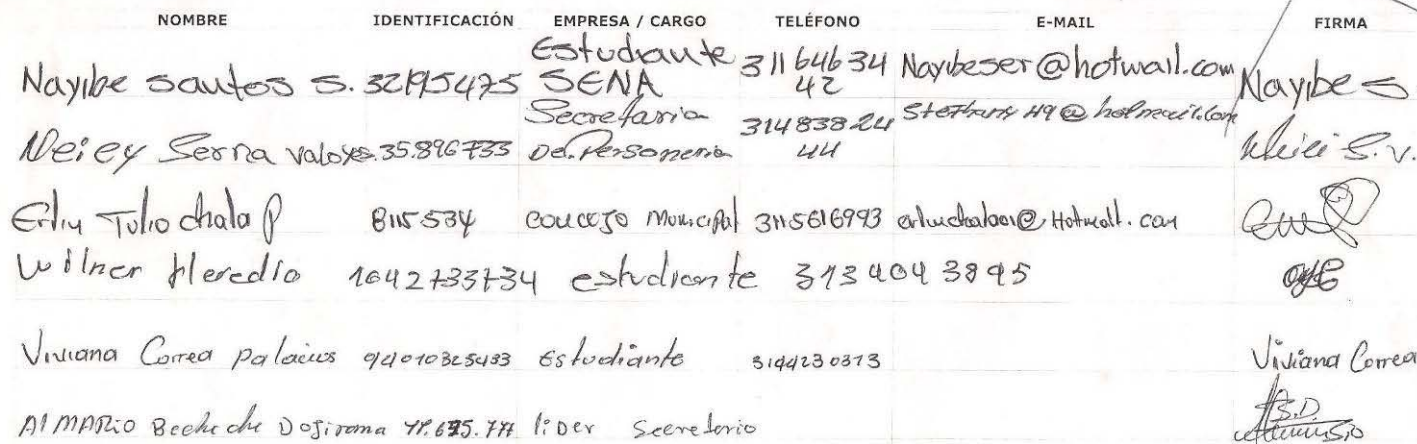 NOMBRE IDENTIFICACIÓN EMPRESA / CARGO TELÉFONO E-MAIL FIRMA
Nayibe santos S. 32195475 Estudiante SENA 3116463442 Nayibeser@hotwail.com Nayibe S
Neicy Serna valoyes. 35.896733 Secretaria De. Personeria 3148382444 S.V.
Erlin Tulio chala P 8115534 concejo Municipal 3115616993
Wilner Heredia 1042733734 estudiante 3134043895
Viviana Correa palacios 94010325433 Estudiante 3144230373 Viviana Correa
AlMARIO Dojirama liDer Secretario B.D.